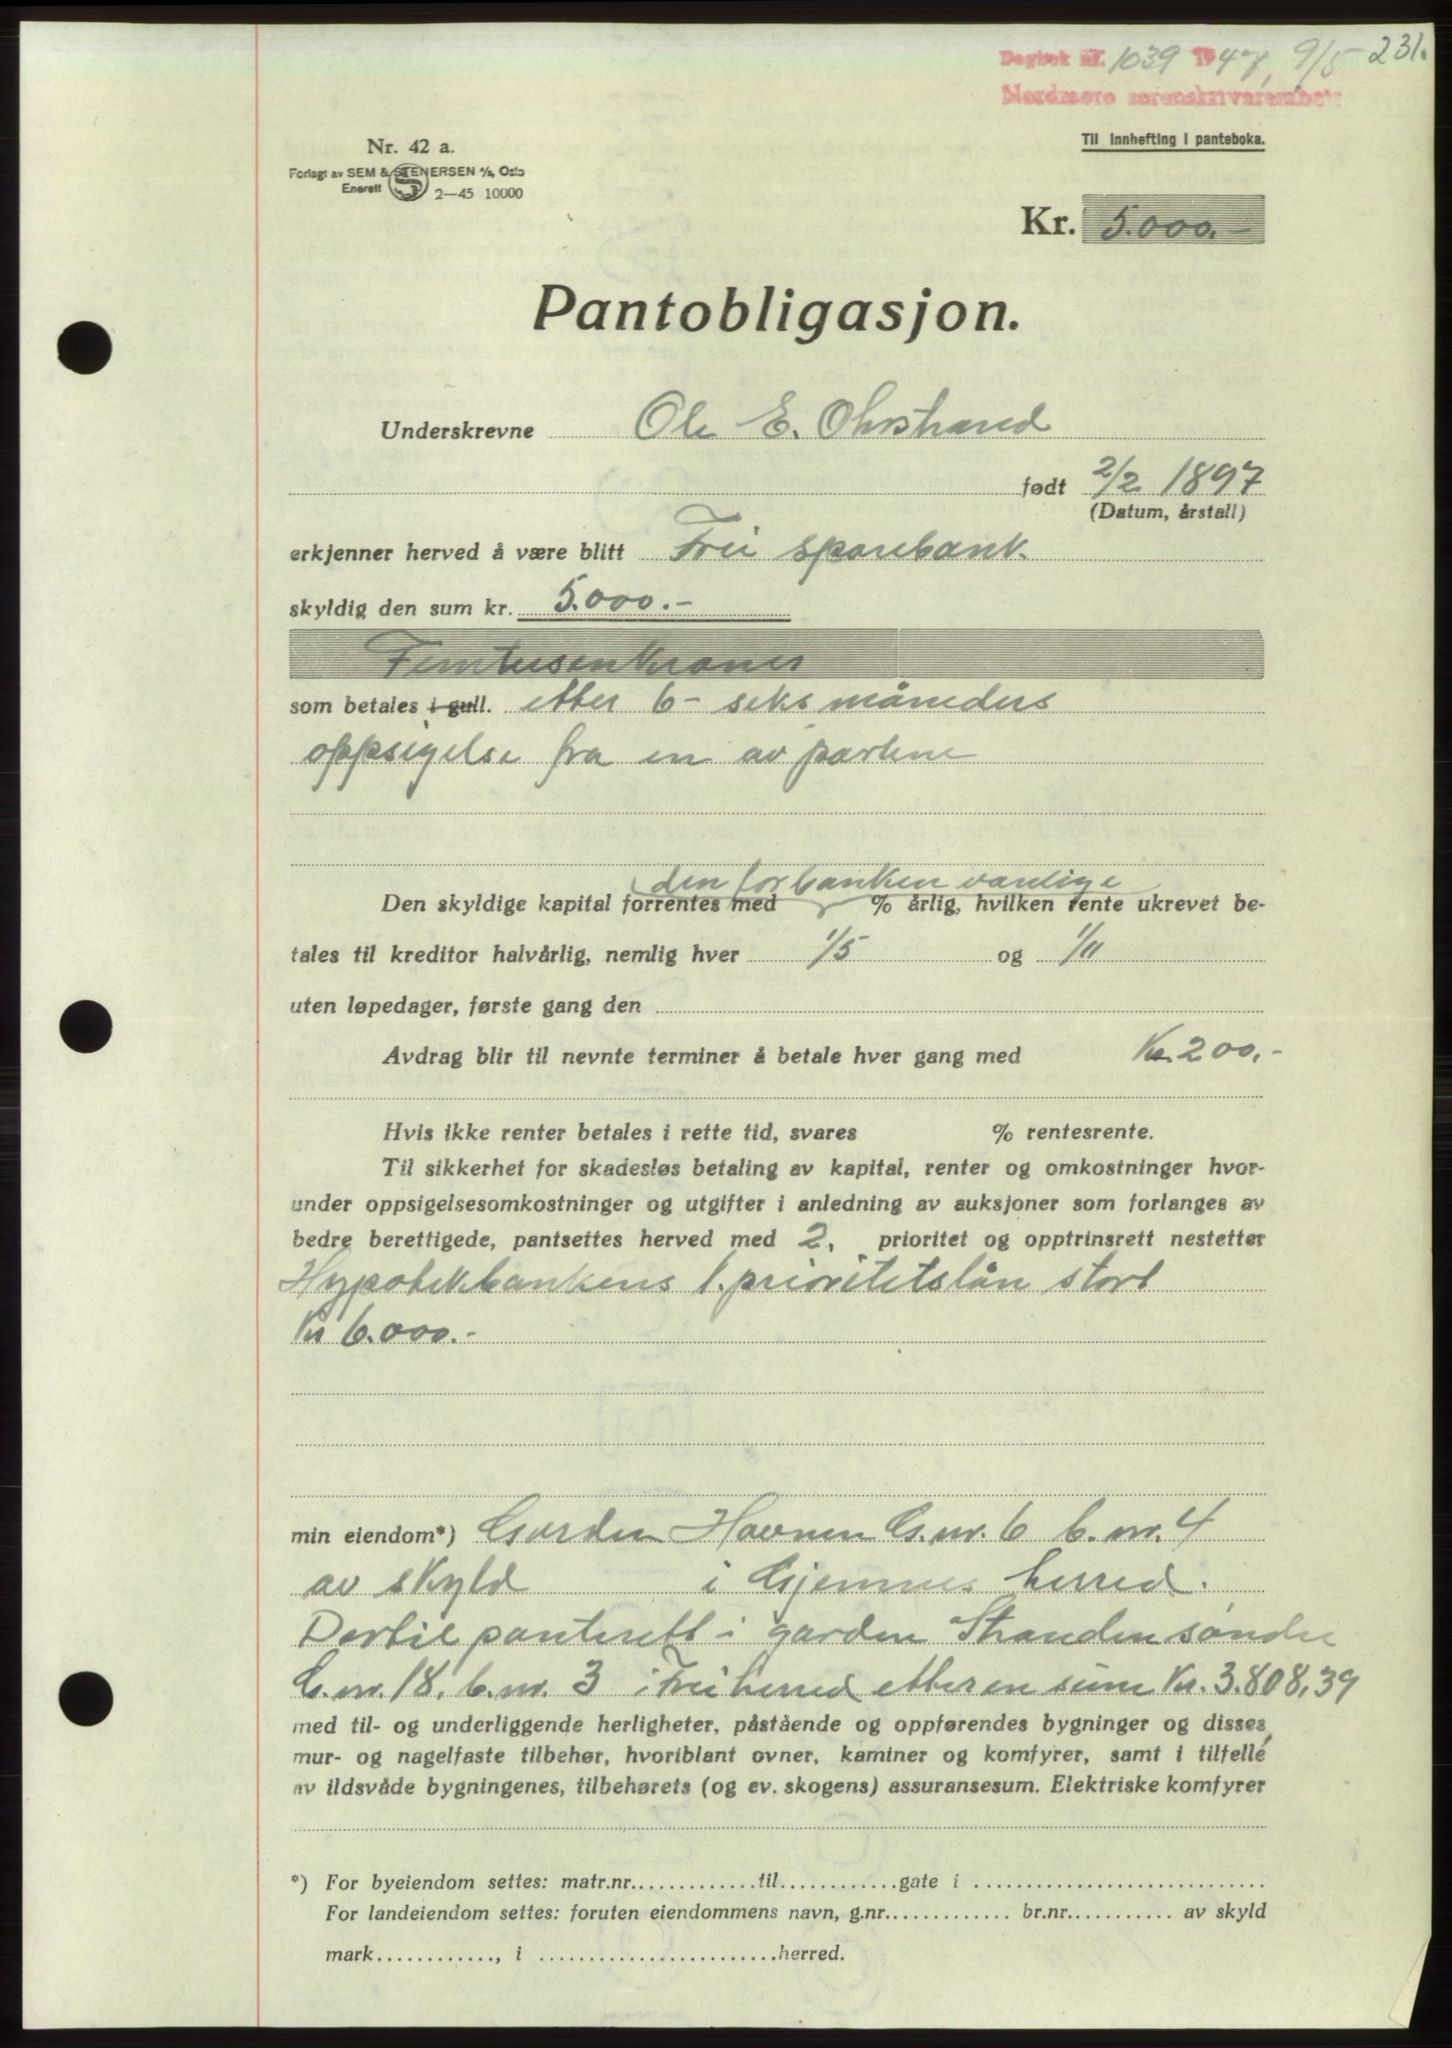 Dagbok nr. 1039 1947, 9/5 231.
Nordmøre sorenskriverembete
Til innhefting i panteboka.
Nr. 42 a.
Forlagt av SEM & STENERSEN A/S, Oslo
Enerett 2—45 10000
Kr. 5.000.-
Pantobligasjon.
Underskrevne Ole E. Ohrstrand
født 2/2 1897
(Datum, årstall)
erkjenner herved å være blitt Frei sparebank.
skyldig den sum kr. 5.000.-
Femtusenkroner
som betales i gull. etter 6- seks måneders
oppsigelse fra en av partene
den for banken vanlige
Den skyldige kapital forrentes med % årlig, hvilken rente ukrevet be-
tales til kreditor halvårlig, nemlig hver 1/5 og 1/11
uten løpedager, første gang den
Avdrag blir til nevnte terminer å betale hver gang med Kr. 200,-
Hvis ikke renter betales i rette tid, svares % rentesrente.
Til sikkerhet for skadesløs betaling av kapital, renter og omkostninger hvor-
under oppsigelsesomkostninger og utgifter i anledning av auksjoner som forlanges av
bedre berettigede, pantsettes herved med 2. prioritet og opptrinsrett nestetter
Hypotekbankens 1. prioritetslån stort
Kr 6.000.-
min eiendom*) Garden Havnen G.nr. 6 b.nr. 4
av skyld i Gjemnes herred.
Dertil panterett i garden Stranden søndre
G.nr. 18. b.nr. 3 i Frei herred etter en sum Kr. 3.808,39
med til- og underliggende herligheter, påstående og oppførendes bygninger og disses
mur- og nagelfaste tilbehør, hvoriblant ovner, kaminer og komfyrer, samt i tilfelle
av ildsvåde bygningenes, tilbehørets (og ev. skogens) assuransesum. Elektriske komfyrer
*) For byeiendom settes: matr.nr.............til............gate i ............................
For landeiendom settes: foruten eiendommens navn, g.nr............. br.nr........... av skyld
mark............, i ........................herred.